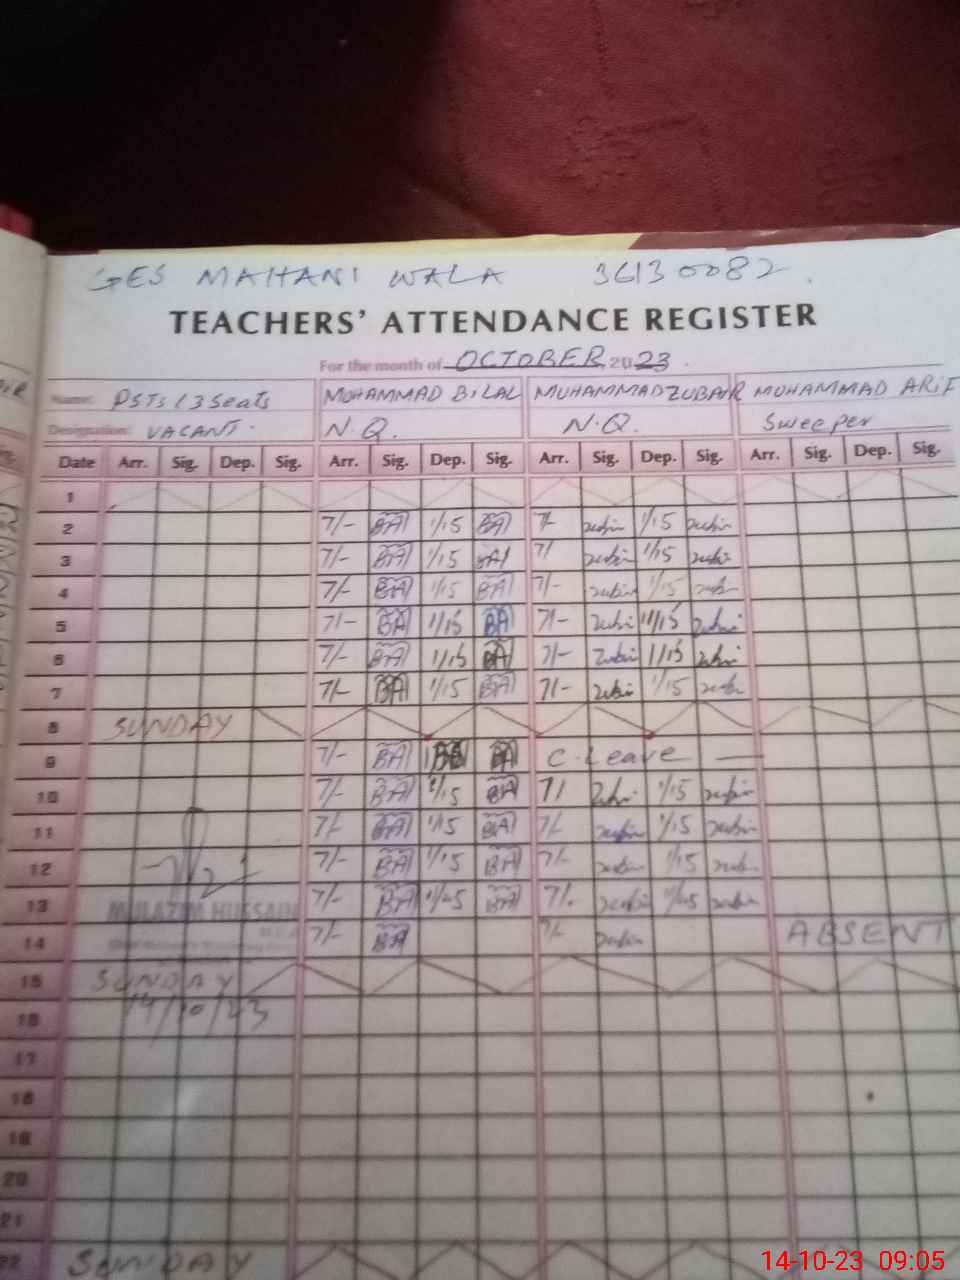 GES MAHANI WALA 36130082
TEACHERS' ATTENDANCE REGISTER
For the month of OCTOBER 2023
Name: PSTs / 3 Seats MUHAMMAD BILAL MUHAMMAD ZUBAIR MUHAMMAD ARIF
Designation: VACANT N.Q. N.Q. Sweeper
Date Arr. Sig. Dep. Sig. Arr. Sig. Dep. Sig. Arr. Sig. Dep. Sig. Arr. Sig. Dep. Sig.
1
2 7/- BA 1/15 BA 7/- zubir 1/15 zubir
3 7/- BA 1/15 BA 7/ zubir 1/15 zubir
4 7/- BA 1/15 BA 7/- zubir 1/15 zubir
5 7/- BA 1/15 BA 7/- zubir 1/15 zubir
6 7/- BA 1/15 BA 7/- zubir 1/15 zubir
7 7/- BA 1/15 BA 7/- zubir 1/15 zubir
8 SUNDAY
9 7/- BA BA C. Leave —
10 7/- BA 1/15 BA 7/ zubir 1/15 zubir
11 7/- BA 1/15 BA 7/- zubir 1/15 zubir
12 7/- BA 1/15 BA 7/- zubir 1/15 zubir
13 MULAZIM HUSSAIN 7/- BA 1/45 BA 7/. zubir 1/45 zubir
14 7/- BA 7/- zubir ABSENT
15 SUNDAY
16 14/10/23
17
18
19
20
21
22 SUNDAY
14-10-23 09:05